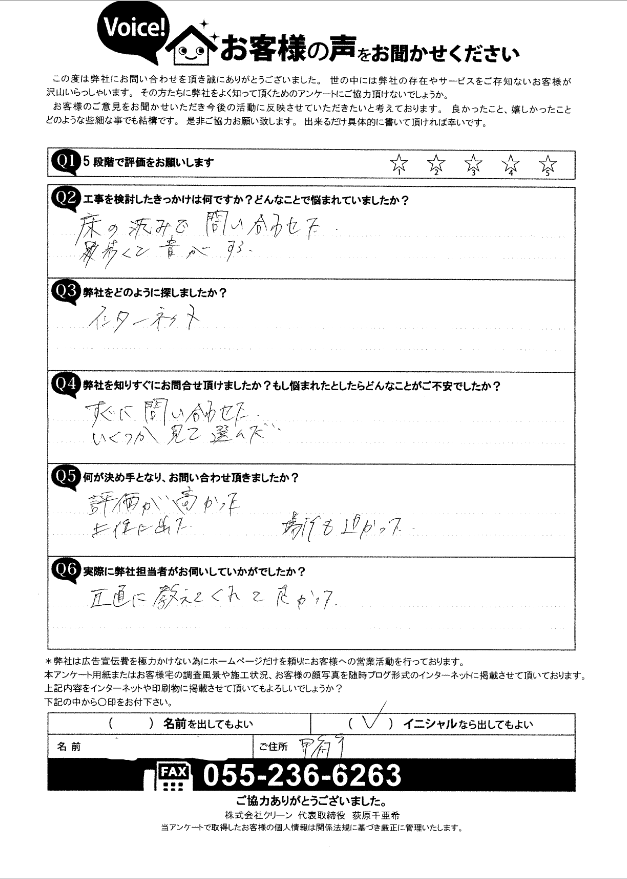 Voice!
お客様の声をお聞かせください
この度は弊社にお問い合わせを頂き誠にありがとうございました。 世の中には弊社の存在やサービスをご存知ないお客様が
沢山いらっしゃいます。 その方たちに弊社をよく知って頂くためのアンケートにご協力頂けないでしょうか。
お客様のご意見をお聞かせいただき今後の活動に反映させていただきたいと考えております。 良かったこと、嬉しかったこと
どのような些細な事でも結構です。 是非ご協力お願い致します。 出来るだけ具体的に書いて頂ければ幸いです。
Q1 5段階で評価をお願いします
☆1 ☆2 ☆3 ☆4 ☆5
Q2 工事を検討したきっかけは何ですか？どんなことで悩まれていましたか？
床の沈みで 問い合わせた.
歩くと 音が する.
Q3 弊社をどのように探しましたか？
インターネット
Q4 弊社を知りすぐにお問合せ頂けましたか？もし悩まれたとしたらどんなことがご不安でしたか？
すぐに 問い合わせた.
いくつか 見て 選んだ
Q5 何が決め手となり、お問い合わせ頂きましたか？
評価が 高かった
上位に出た 場所も 近かった.
Q6 実際に弊社担当者がお伺いしていかがでしたか？
正直に 教えてくれて 良かった.
＊弊社は広告宣伝費を極力かけない為にホームページだけを頼りにお客様への営業活動を行っております。
本アンケート用紙またはお客様宅の調査風景や施工状況、お客様の顔写真を随時ブログ形式のインターネットに掲載させて頂いております。
上記内容をインターネットや印刷物に掲載させて頂いてもよろしいでしょうか？
下記の中から〇印をお付下さい。
（ ）名前を出してもよい （✓）イニシャルなら出してもよい
名前 ご住所 甲府市
FAX 055-236-6263
ご協力ありがとうございました。
株式会社クリーン 代表取締役 荻原千亜希
当アンケートで取得したお客様の個人情報は関係法規に基づき厳正に管理いたします。